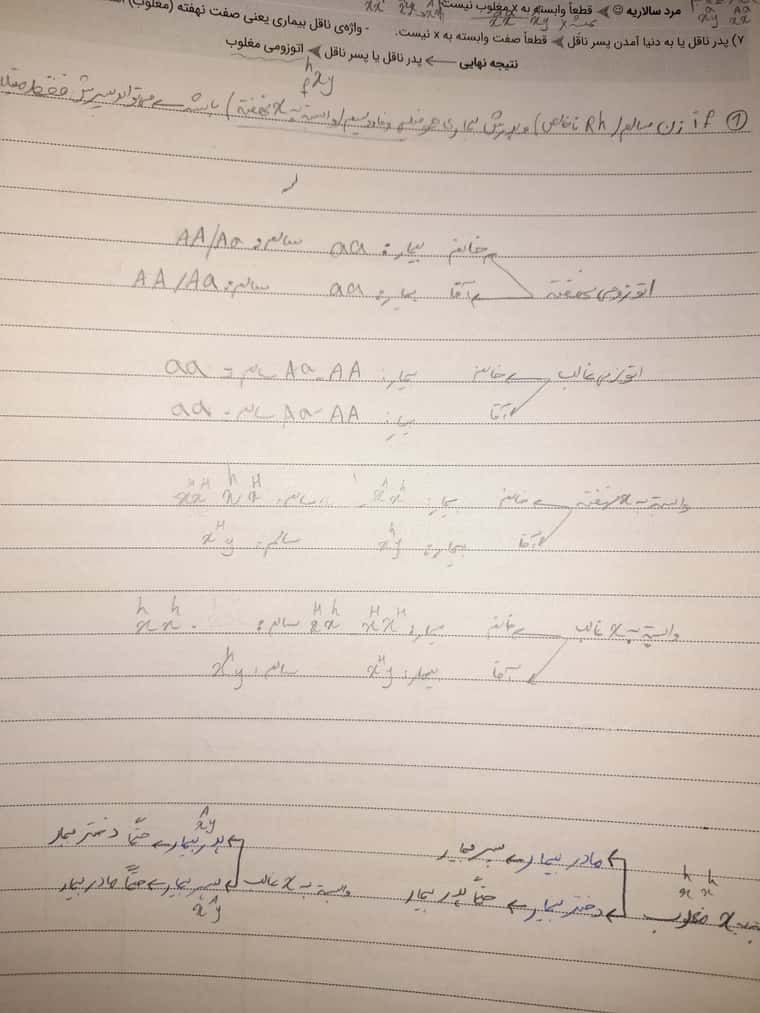 مرد سالاریه ☺ ⮜ قطعاً وابسته به x مغلوب نیست
۷) پدر ناقل یا به دنیا آمدن پسر ناقل ⮜ قطعاً صفت وابسته به x نیست. - واژه‌ی ناقل بیماری یعنی صفت نهفته (مغلوب)
نتیجه نهایی ← پدر ناقل یا پسر ناقل ⮜ اتوزومی مغلوب
① if زن سالم
اتوزومی نهفته
خانم بیمار: aa سالم: AA/Aa
آقا بیمار: aa سالم: AA/Aa
اتوزومی غالب
خانم بیمار: Aa-AA سالم = aa
آقا بیمار: Aa-AA سالم = aa
وابسته به x نهفته
خانم بیمار: xʰxʰ سالم: xʰxᴴ xᴴxᴴ
آقا بیمار: xʰy سالم: xᴴy
وابسته به x غالب
خانم بیمار: xᴴxᴴ xᴴxʰ سالم: xʰxʰ
آقا بیمار: xᴴy سالم: xʰy
x مغلوب xʰxʰ
مادر بیمار ← پسر بیمار
دختر بیمار ← حتماً پدر بیمار
وابسته به x غالب
پدر بیمار ← حتماً دختر بیمار xᴬy
پسر بیمار ← حتماً مادر بیمار xᴬy